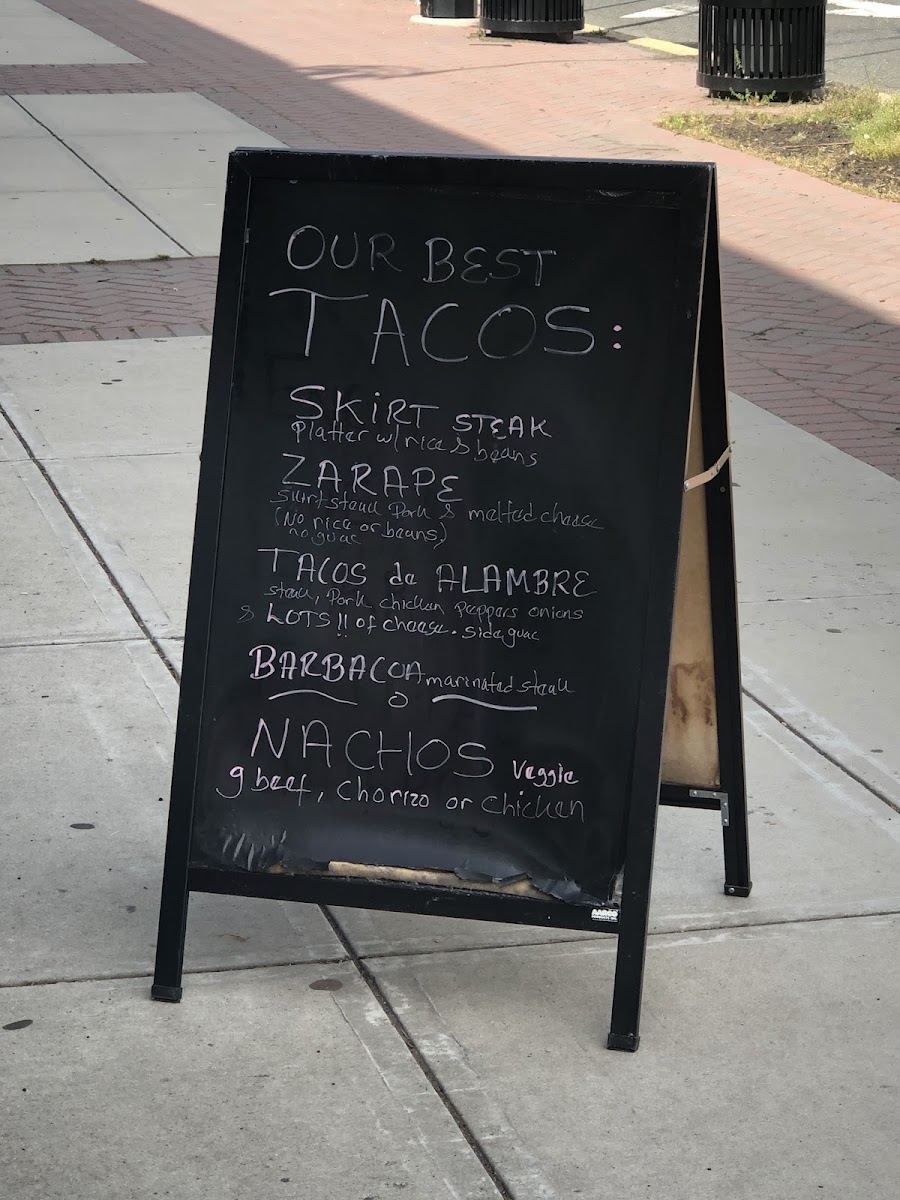 OUR BEST
TACOS:
SKiRT STEAK
Platter w/ rice & beans
ZARAPE
Skirt steak Pork & melted cheese
(No rice or beans)
no guac
TACOS de ALAMBRE
steak, Pork chicken peppers onions
& LOTS!! of cheese. side guac
BARBACOA marinated steak
NACHOS Veggie
g beef, chorizo or chicken
AARCO